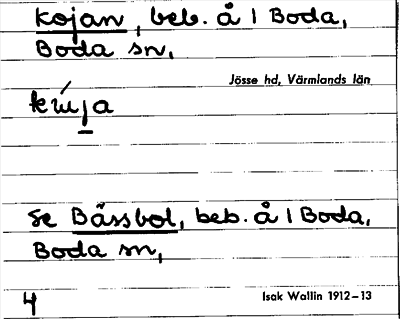 Kojan, beb. å 1 Boda,
Boda sn,
Jösse hd, Värmlands län
se Båssbol, beb. å 1 Boda,
Boda sn,
4
Isak Wallin 1912–13